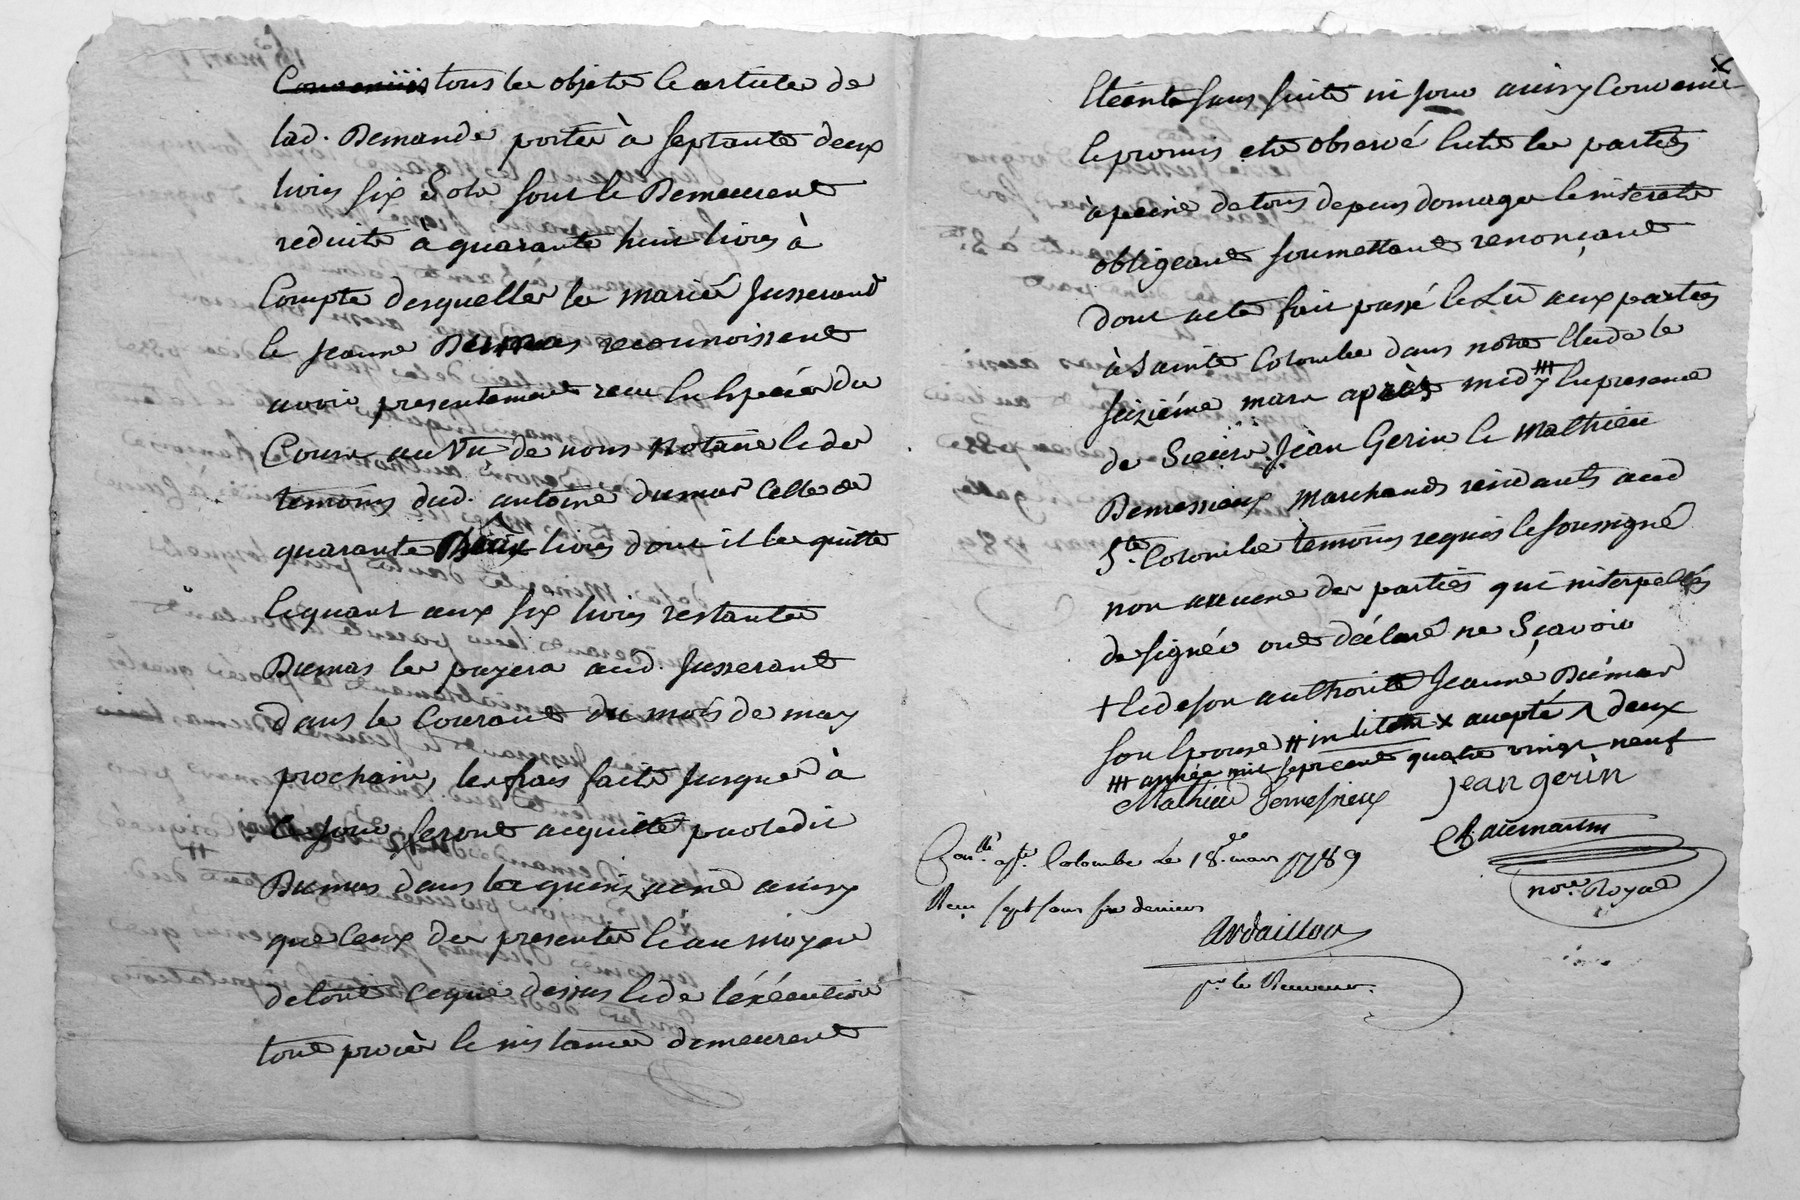 tous les objets et articles de
lad. Demande portés à septante deux
livres six sols sont et Demeurent
reduits à quarante huit livres à
Compte desquelles les mariés Jusserand
et Jeanne Dumas reconnoissent
avoir presentement recu en Espèces du
Cours au Vu de nous Notaire et des
temoins dud. antoine dumas Celle de
quarante Deux livres dont il les quitte
et quant aux six livres restantes
Dumas les payera aud. Jusserand
dans le Courant du mois de may
prochain, les frais faits Jusques à
Ce jour seront acquittés par led.
Dumas dans la quinzaine ainsy
que Ceux des presentes et au moyen
de tout Ceque dessus et de l'éxécution
tout procès et instances demeurent
Eteints sans suite ni jour ainsy Convenu
et promis etre observé Entre les parties
à peine de tous depens domages et interets
obligeant soumettant renonçant
dont acte fait passé et Lû aux parties
à Sainte Colombe dans notre Etude le
seizième mars après midy ⧻ En presence
de Sieurs Jean Gerin et Mathieu
Demessieux Marchands residants aud
Ste. Colombe temoins requis et soussignés
non aucune des parties qui interpellés
de signer ont déclaré ne Sçavoir
+ et de son authorité Jeanne Dumas
son Epouse # x accepté deux
⧻ année mil sept cent quatre vingt neuf
Mathieu Demessieux Jean gerin
nore. Royal
Conllé. a Ste. Colombe Le 18. mars 1789
Reçu sept sous six deniers
Ardaillon
pr. le Receveur.